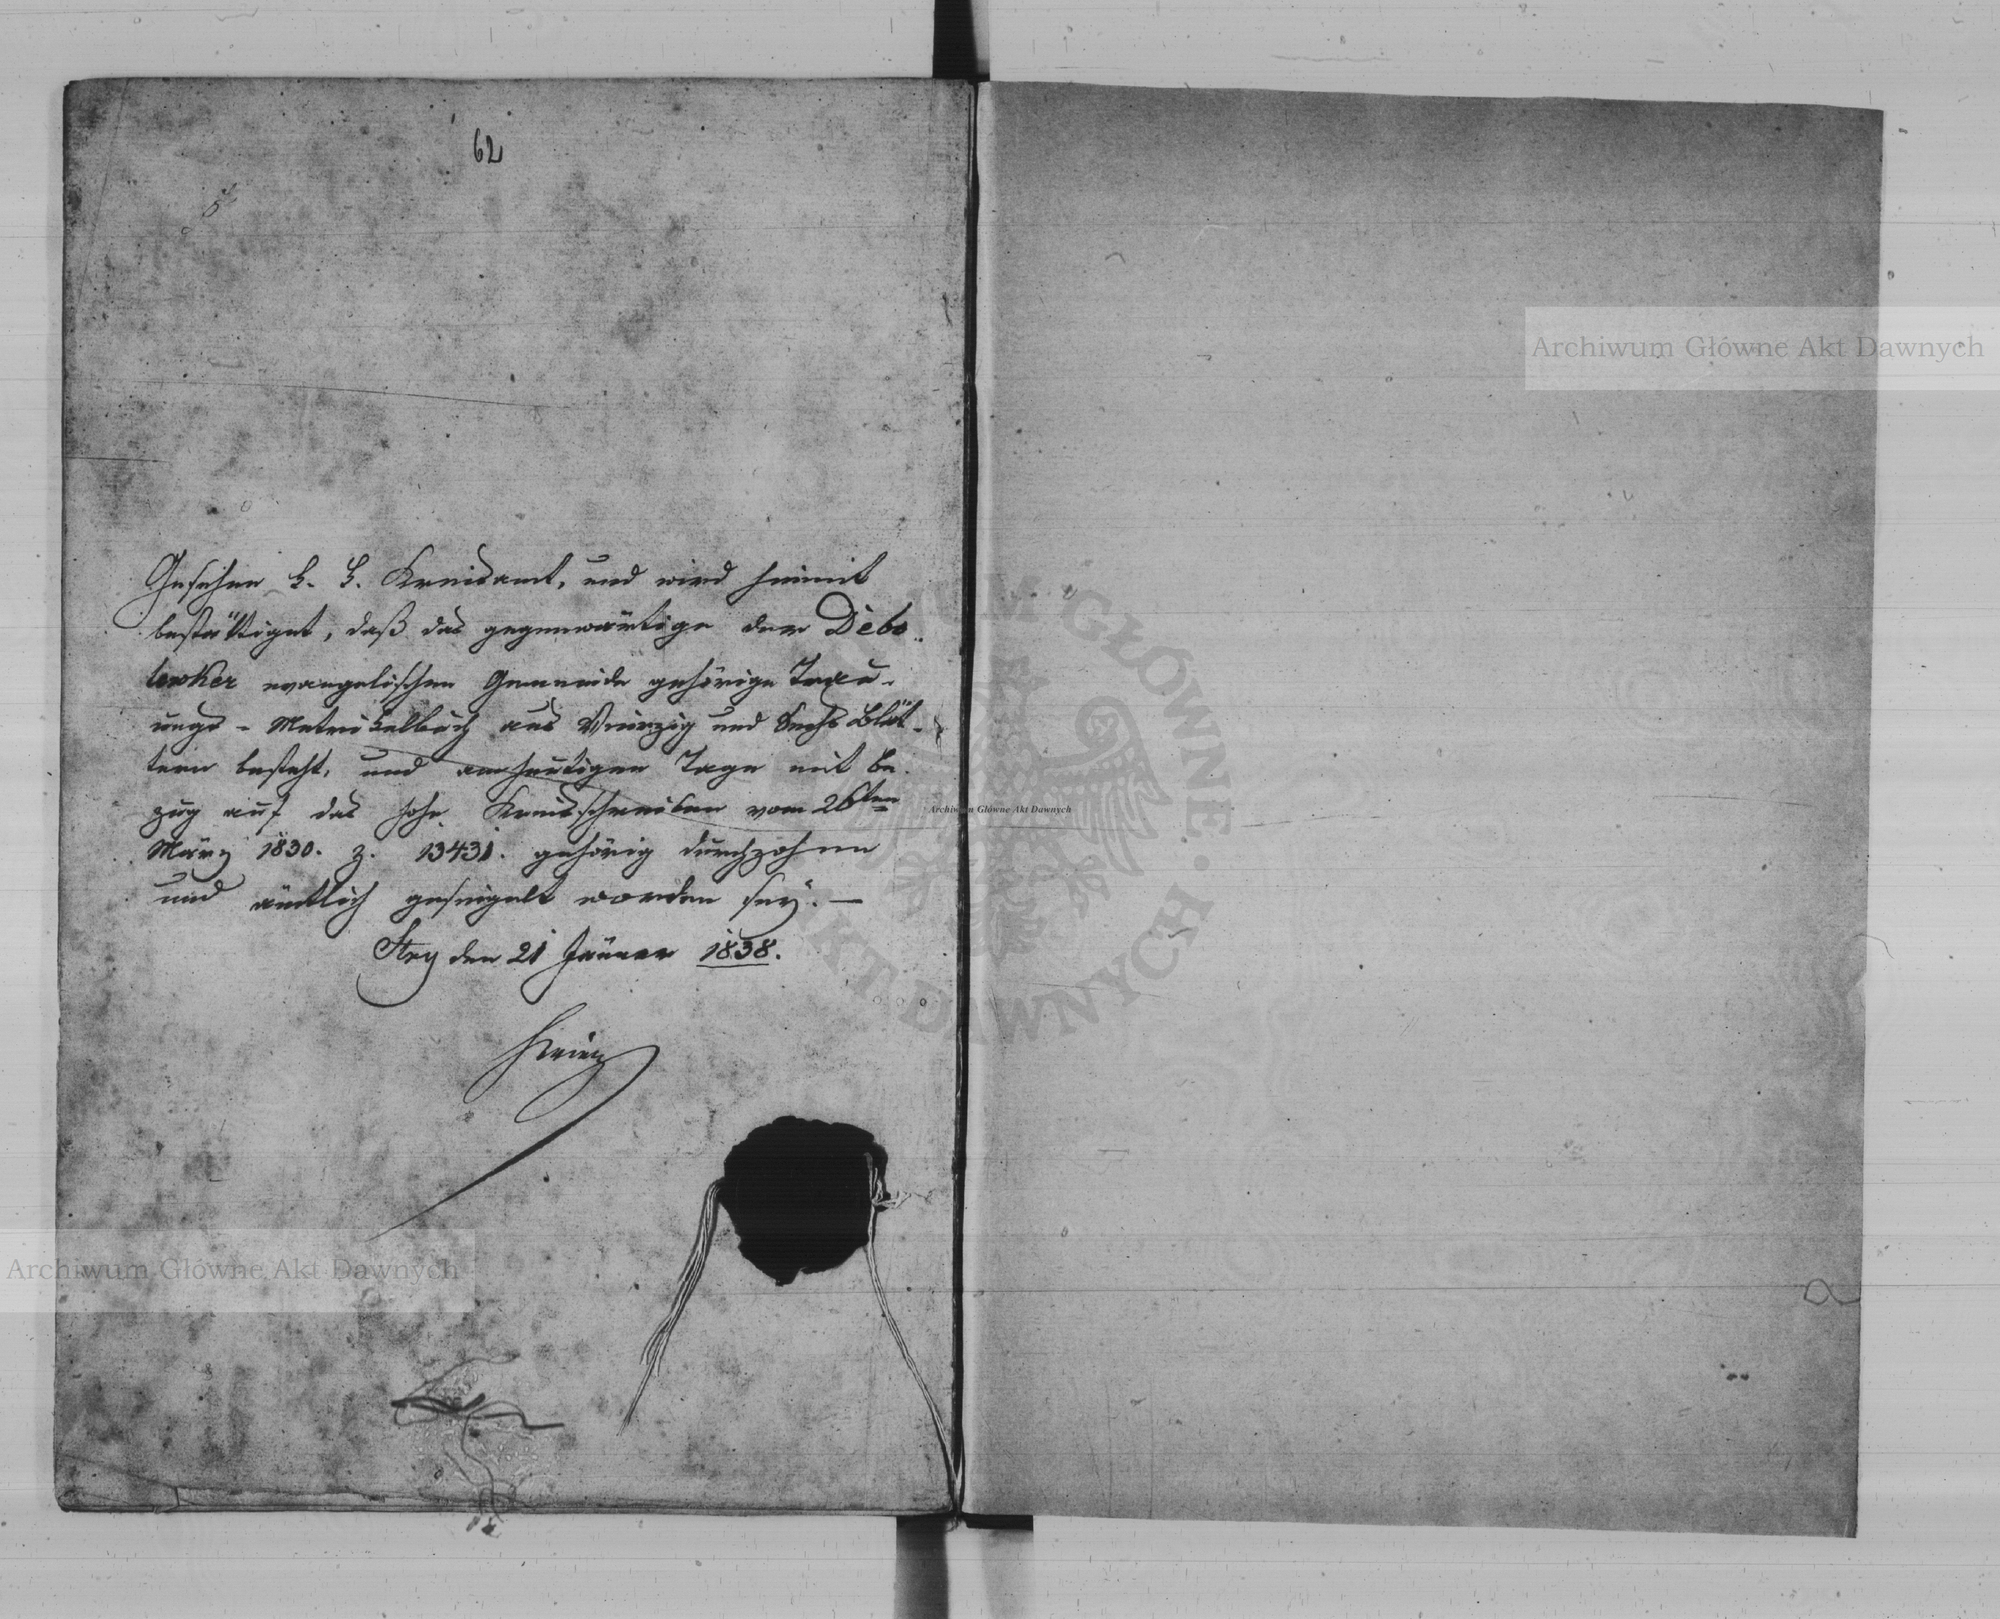 62
Gesehen k. k. Kreisamt, und wird hiemit
bestättiget, daß das gegenwärtige der Debo
lowker evangelischen Gemeinde gehörige Trau-
ungs - Matrikelbuch aus Vierzig und Sechs Blät-
tern besteht, und am heutigen Tage mit Be
zug auf das hohe Kreisschreiben vom 26ten
März 1830. Z. 13431. gehörig durchzohen
und ämtlich gesiegelt worden sey. —
Stry den 21 Jäner 1838.
Archiwum Główne Akt Dawnych
Archiwum Główne Akt Dawnych
Archiwum Główne Akt Dawnych
GŁÓWNE · AKT DAWNYCH